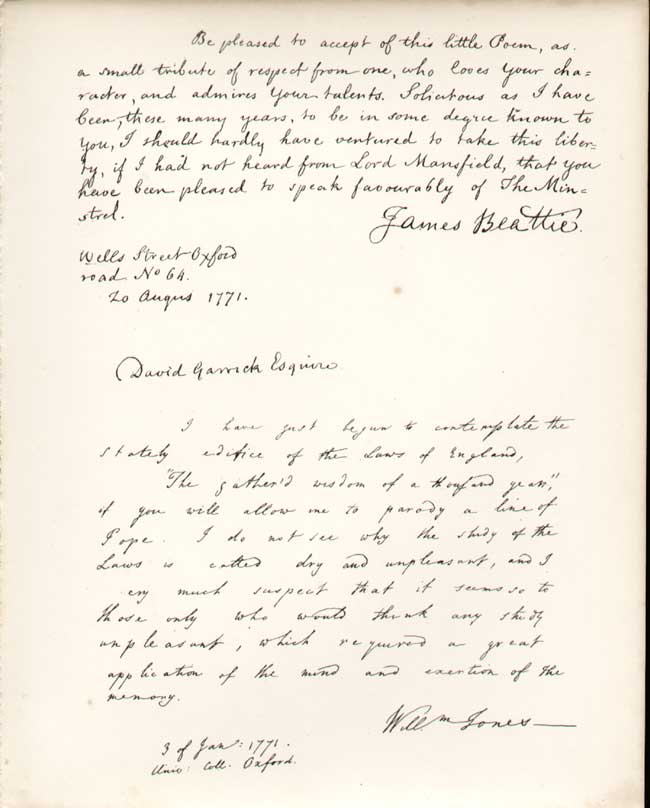 Be pleased to accept of this little Poem, as
a small tribute of respect from one, who loves your cha=
racter, and admires Your talents. Solicitous as I have
been, these many years, to be in some degree known to
You, I should hardly have ventured to take this liber=
ty, if I had not heard from Lord Mansfield, that you
have been pleased to speak favourably of The Min=
strel.
James Beattie.
Wells Street Oxford
road No 64.
20 Augus 1771.
David Garrick Esquire
I have just begun to contemplate the
stately edifice of the Laws of England,
"The gather'd wisdom of a thousand years",
if you will allow me to parody a line of
Pope. I do not see why the study of the
Laws is called dry and unpleasant, and I
ery much suspect that it seems so to
those only who would think any study
unpleasant, which required a great
application of the mind and exertion of the
memory.
Will.m Jones
3 of Jan: 1771.
Univ: Coll. Oxford.